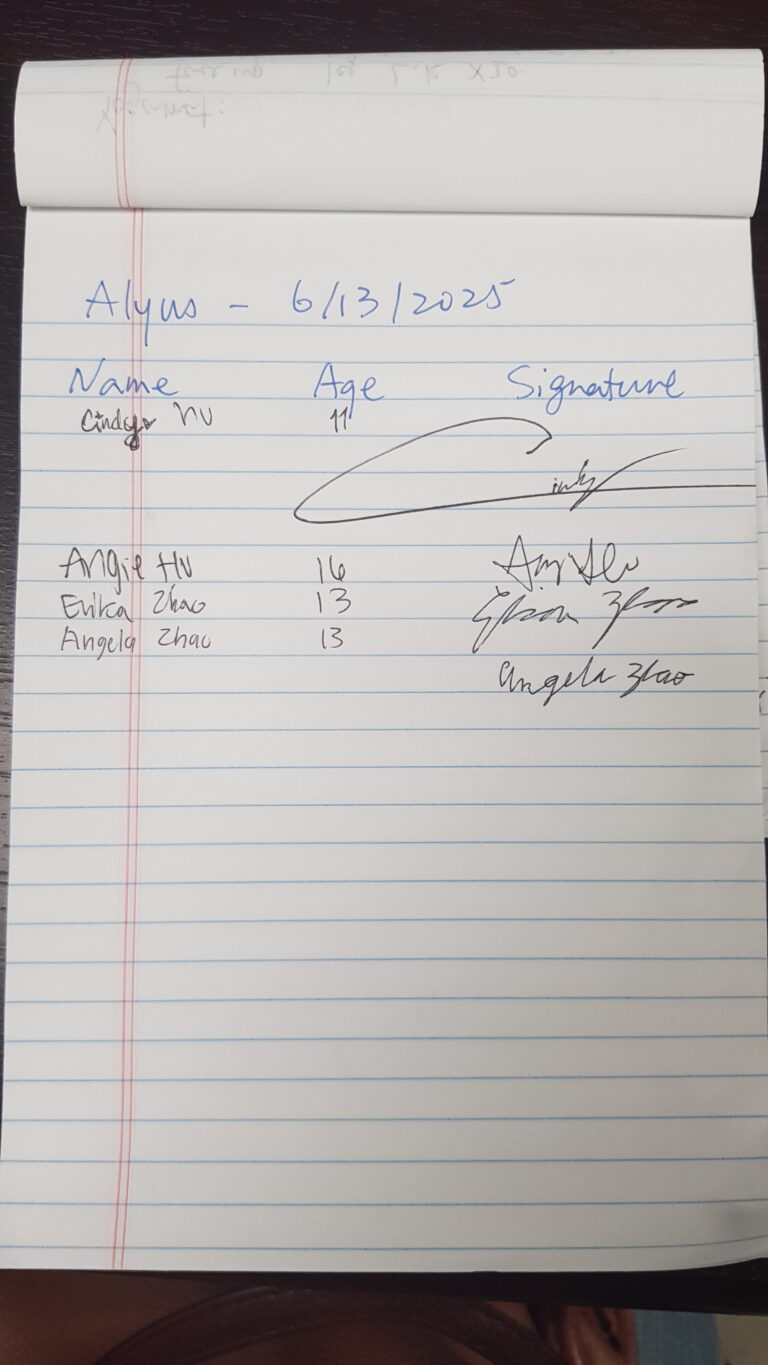 Alyus - 6/13/2025
Name Age Signature
Cindy Hu 11
Cindy
Angie Hu 16
Erika Zhao 13 Zhao
Angela Zhao 13
Angela Zhao